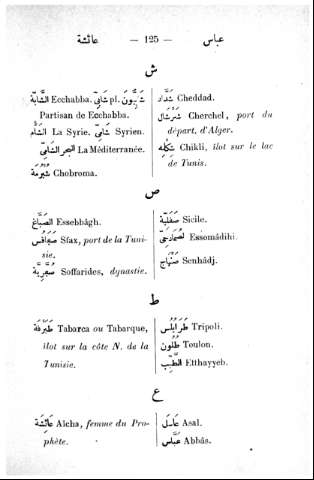 عائشة — 125 — عباس
ش
الشابّة Ecchabba. شابّي pl. شابّيون
Partisan de Ecchabba.
الشأم La Syrie. شامي Syrien.
البحر الشامي La Méditerranée.
شبرمة Chobroma.
شدّاد Cheddad.
شرشال Cherchel, port du
départ. d'Alger.
شكلة Chikli, îlot sur le lac
de Tunis.
ص
الصبّاغ Essebbâgh.
صفاقس Sfax, port de la Tuni-
sie.
Soffarides, dynastie.
صقلّية Sicile.
Essomâdihi.
صنهاج Senhâdj.
ط
طبرقة Tabarca ou Tabarque,
îlot sur la côte N. de la
Tunisie.
طرابلس Tripoli.
طلون Toulon.
الطيّب Etthayyeb.
ع
عائشة Aïcha, femme du Pro-
phète.
Asal.
عبّاس Abbâs.